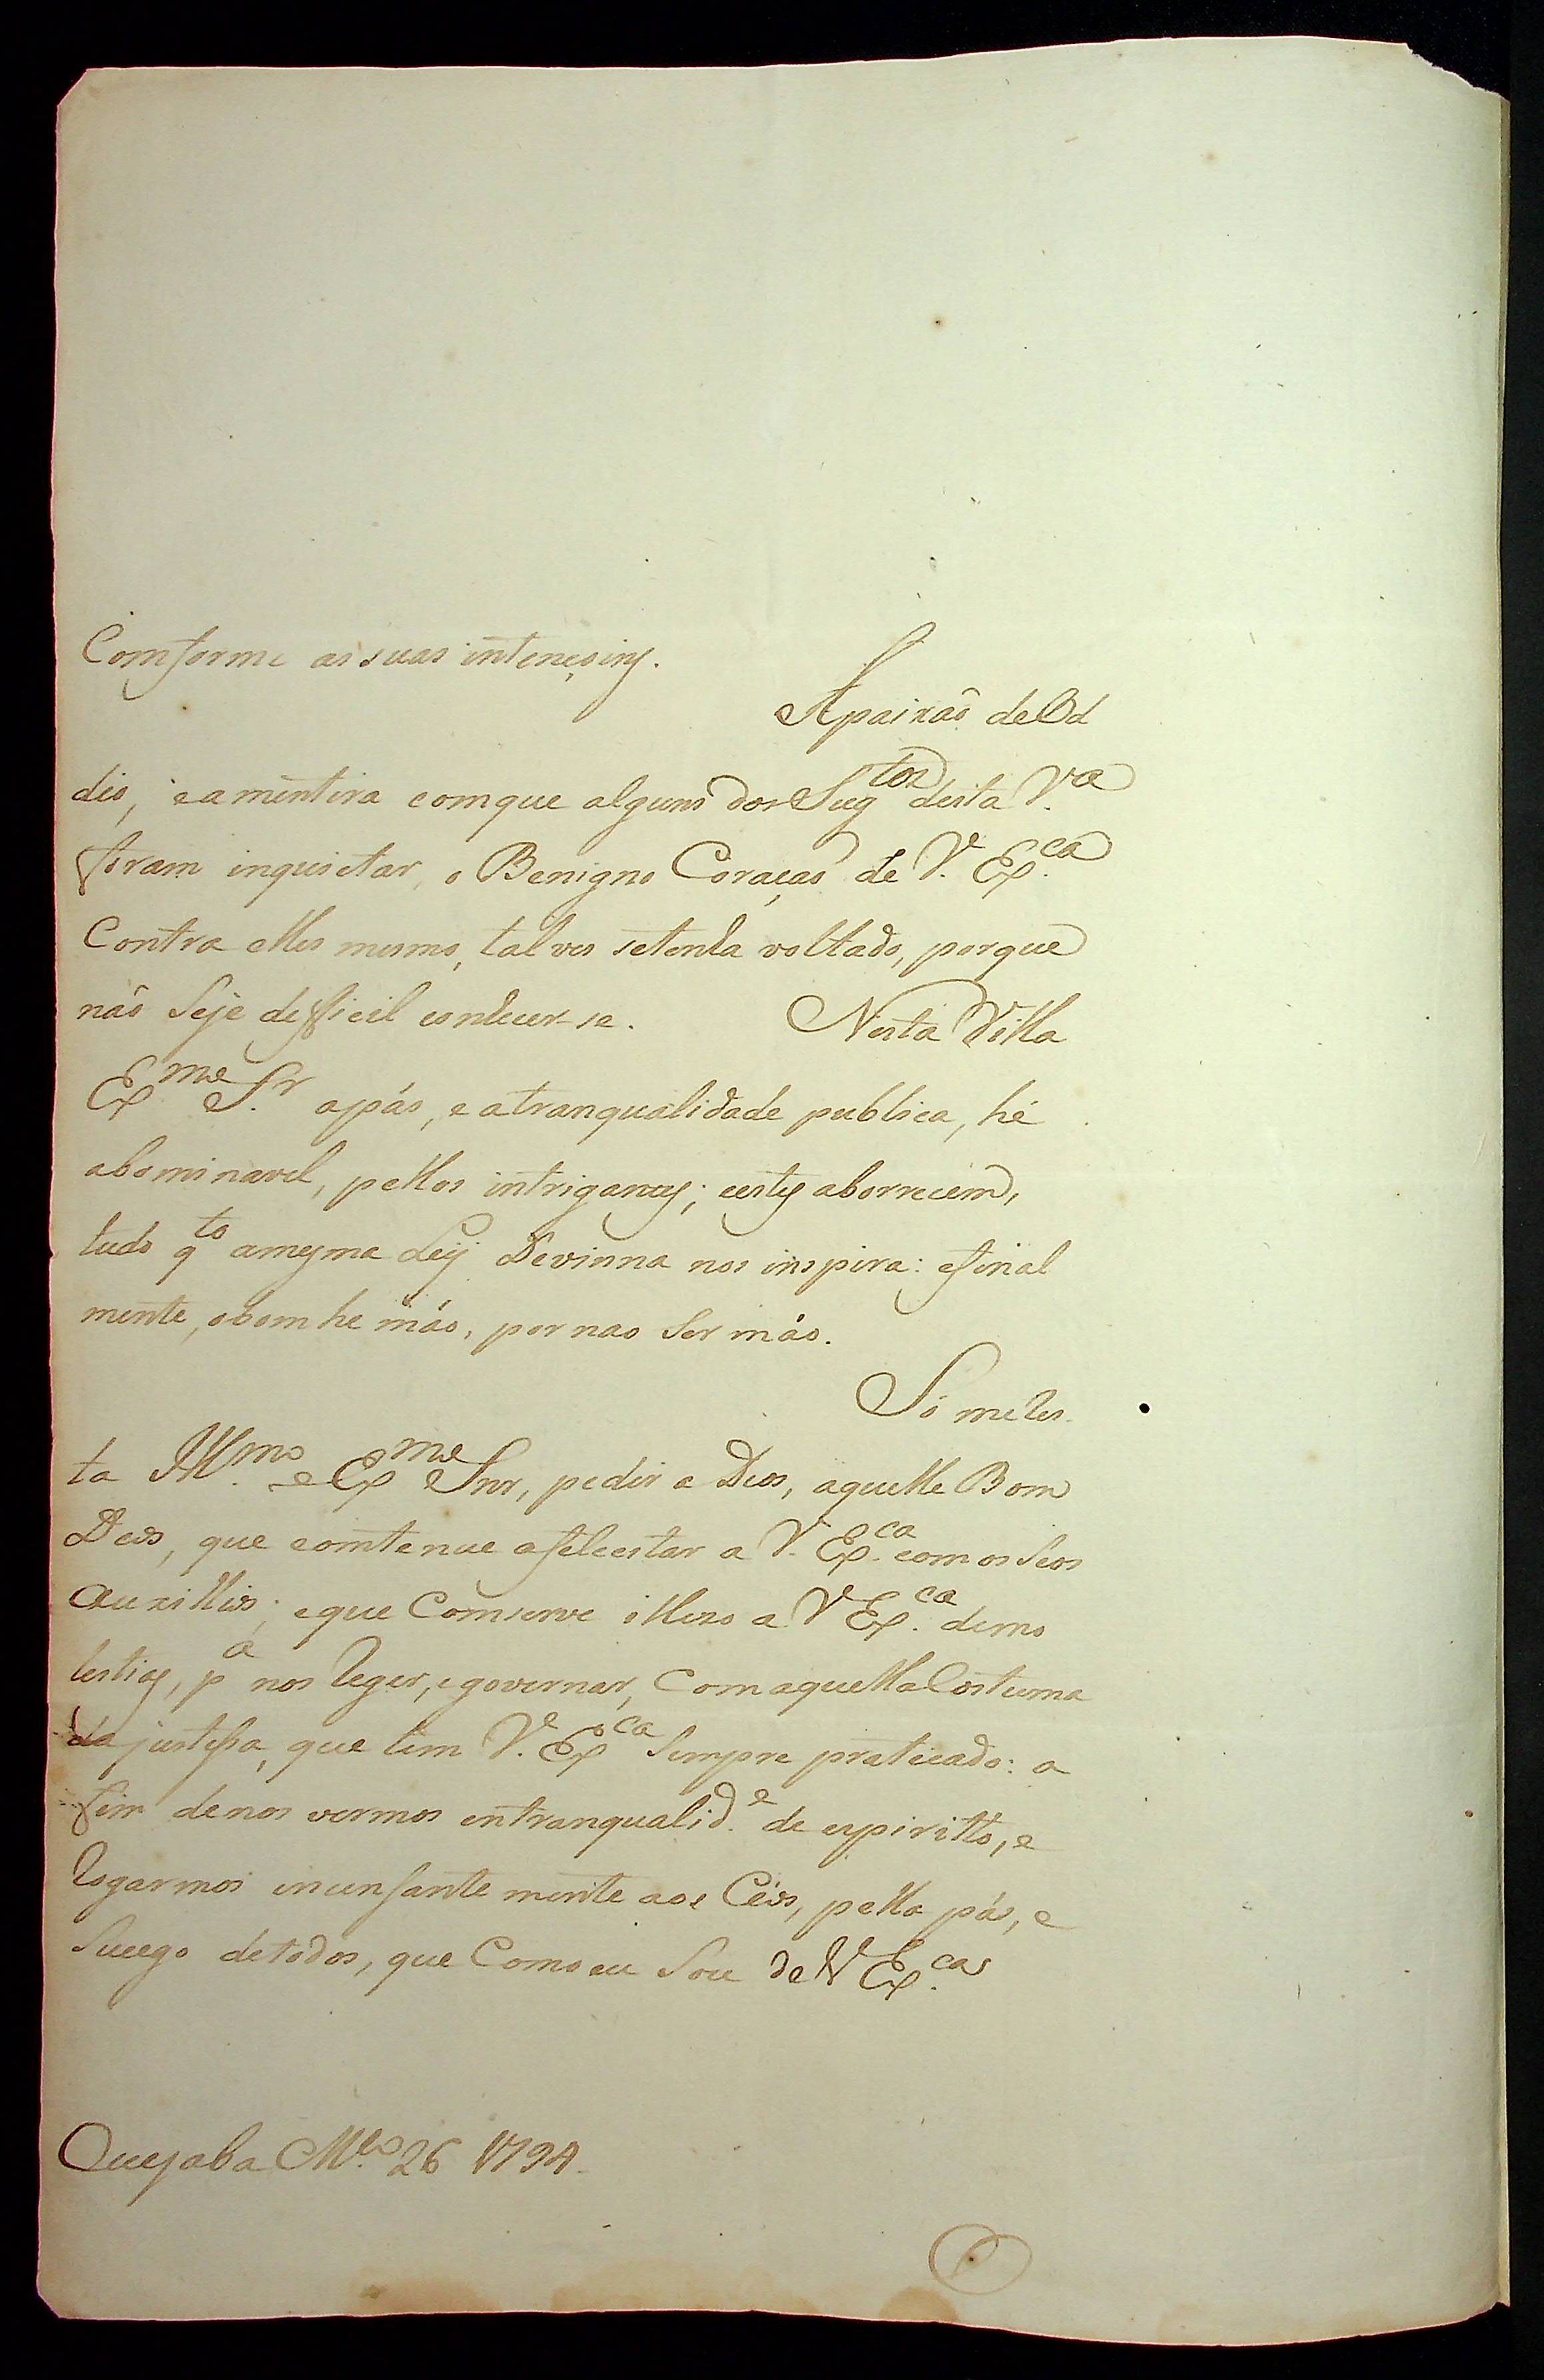 Comforme as suas intençoins.
Apaixaõ deOd
dio, eamentira comque alguns dos Sug.tos desta V.a
foram inquietar, o Benigno Coraçaõ de V. Ex.ca
Contra elles mesmo, talves setenha voltado, porque
naõ Seje defficil conhecer-se. Nesta Villa
Ex.mo S.r apás, e atranqualidade publica, hé
abominavel, pellos intrigantes; eestes aborrecem,
tudo q.to amesma Leÿ Devinna nos inspira: efinal
mente, obom he máo, por nao Ser máo.
Só meRes
ta Ill.mo e Ex.mo Snr, pedir a Deos, aquelle Bom
Deos, que comtenue afelecitar a V. Ex.ca com os Seos
auxillios; eque Comserve illezo a V Ex.ca demo
lestias, p.a nos Reger, e governar, Com aquella Costuma
da justissa, que tem V. Ex.ca Sempre praticado: a
fim denos vermos entranqualid.e de espiritto, e
Rogarmos incensante mente aos Céos, pella pás, e
Sucego detodos, que Como eu Sou de V Ex.cas
Cuyaba M.ço 26 1794